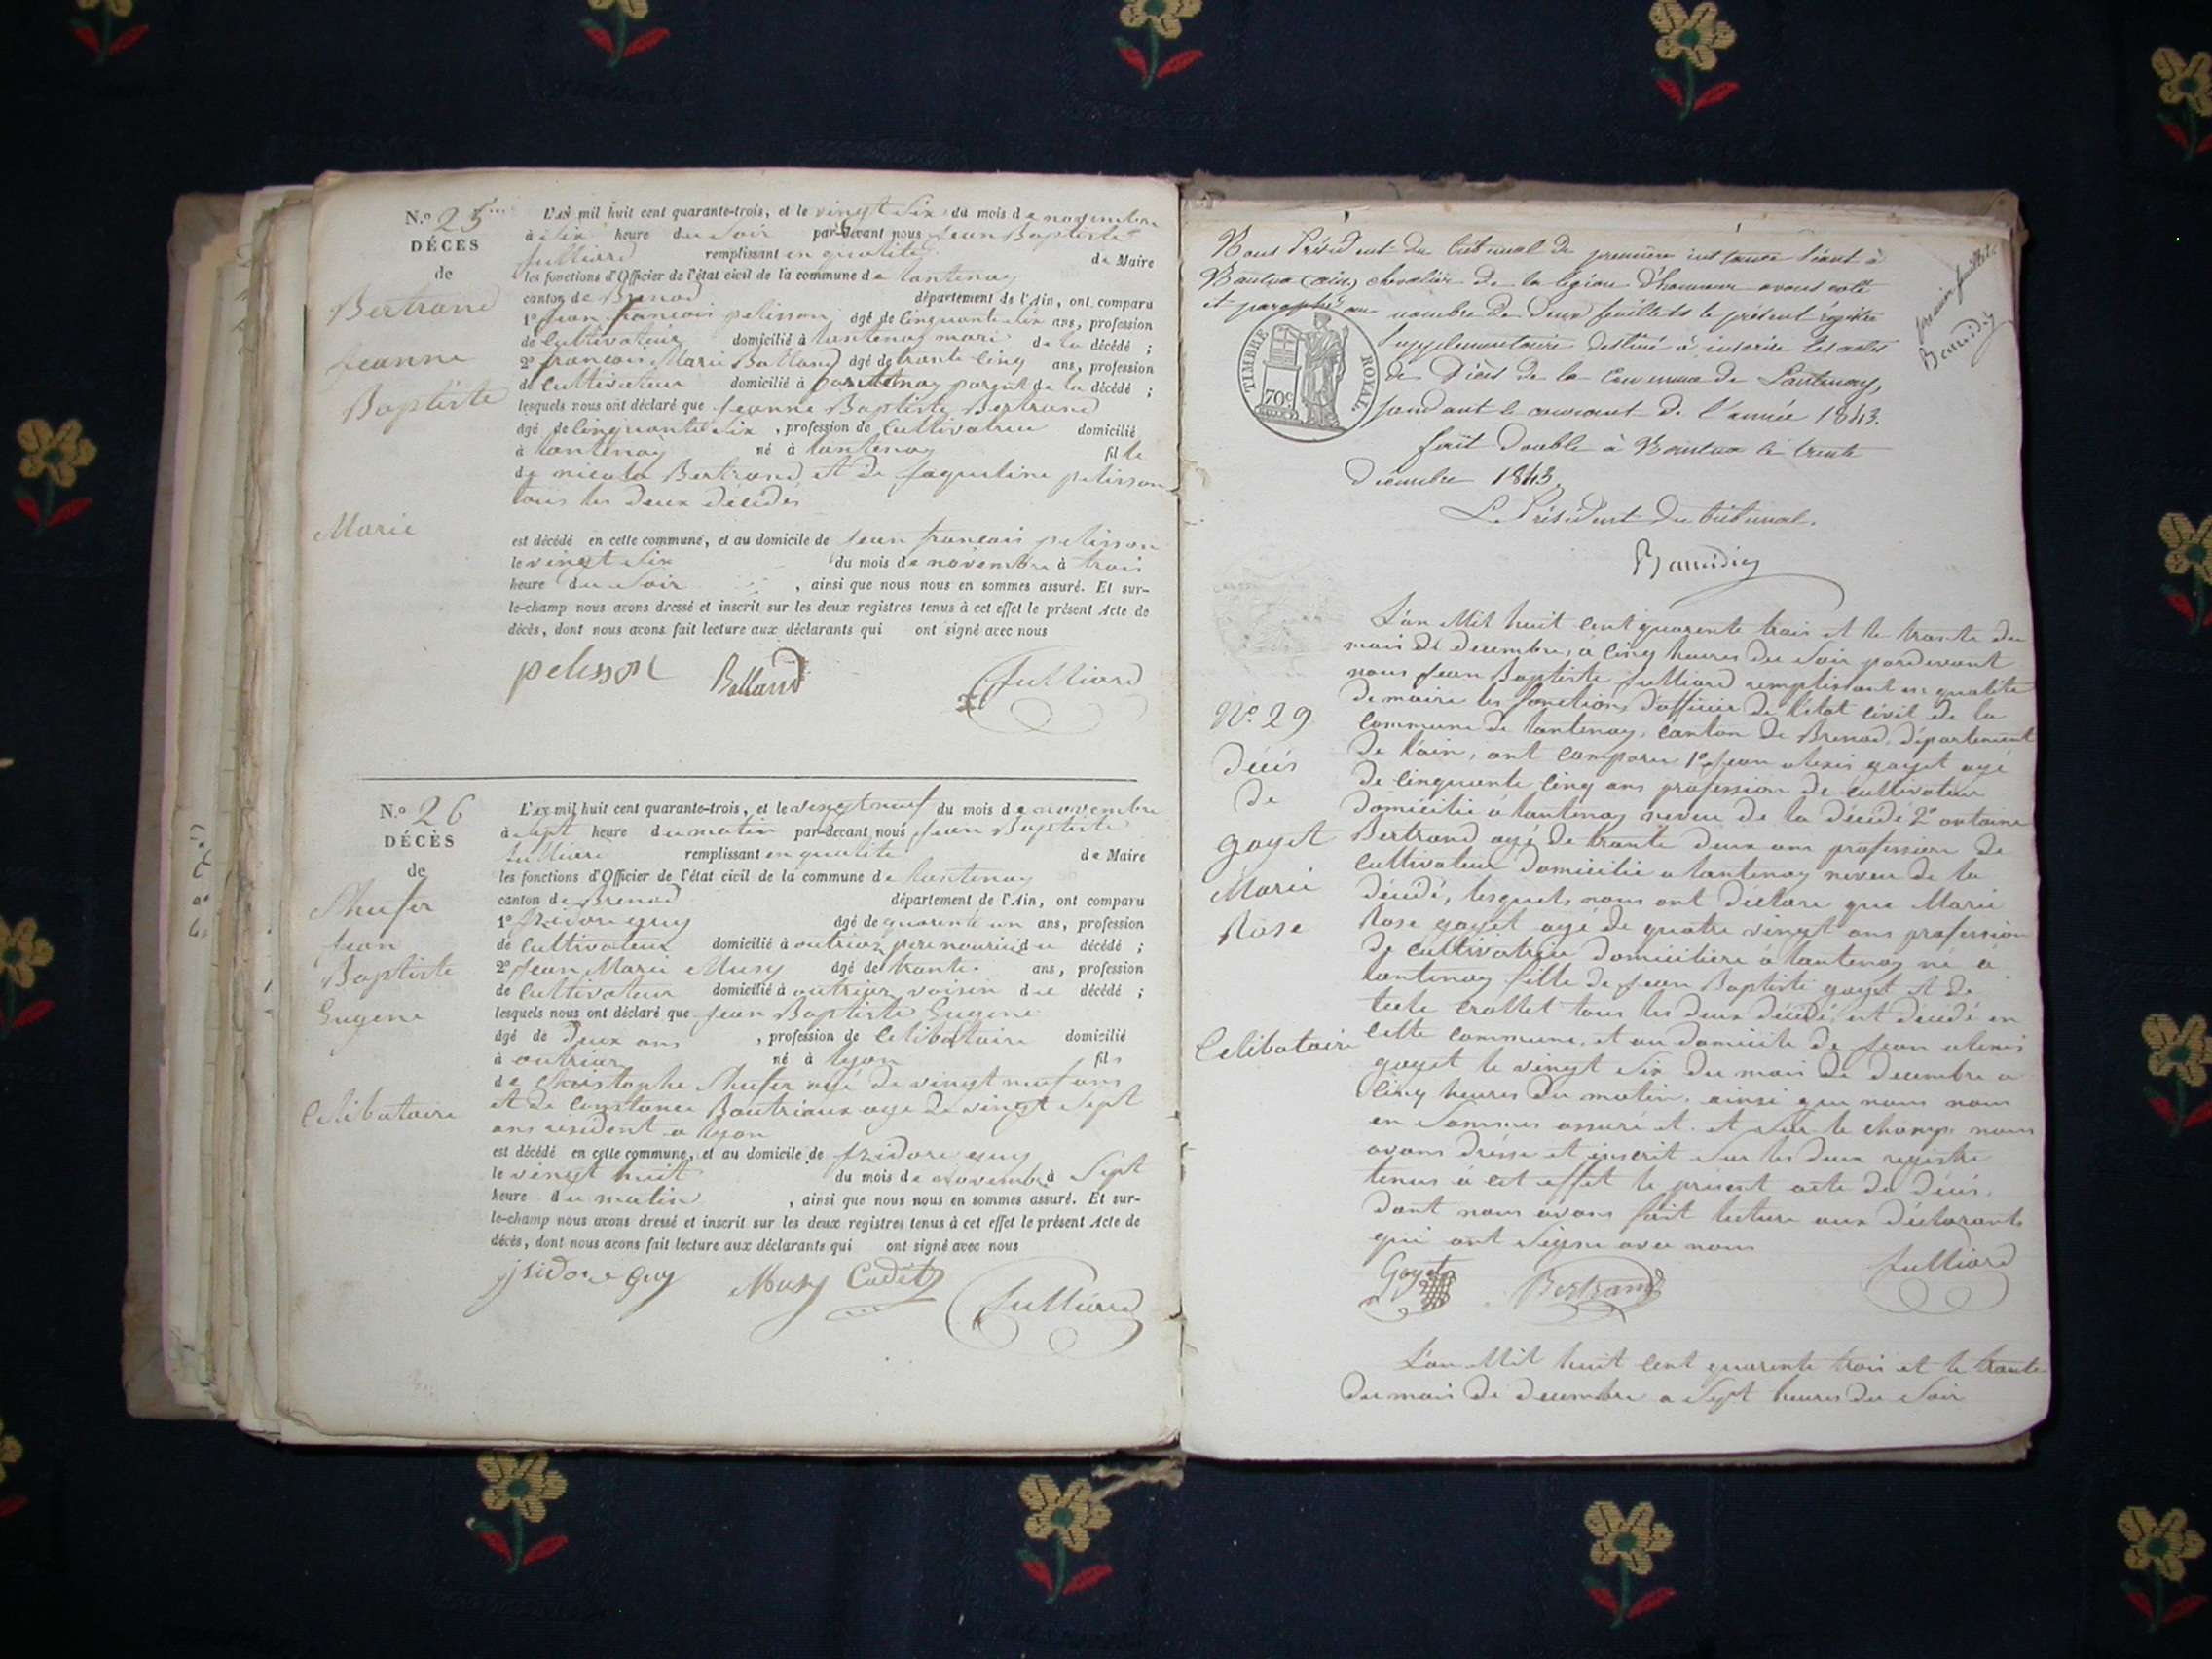 N.º 25
DÉCÈS
de
Bertrand
Jeanne
Baptiste
Marie
L'AN mil huit cent quarante-trois, et le vingt six du mois de novembre
à six heure du soir par-devant nous Jean Baptiste
Julliard remplissant en qualité de Maire
les fonctions d'Officier de l'état civil de la commune de lantenay
canton de Brenod département de l'Ain, ont comparu
1º Jean francois pelisson âgé de Cinquante six ans, profession
de Cultivateur domicilié à lantenay mari de la décédé ;
2º francois Marie Balland âgé de trante Cinq ans, profession
de Cultivateur domicilié à lantenay parent de la décédé ;
lesquels nous ont déclaré que Jeanne Baptiste Bertrand
âgé de Cinquante six , profession de Cultivatrice domicilié
à lantenay né à lantenay fille
de nicola Bertrand et de Jaqueline pelisson
tous les deux décédés
est décédé en cette commune, et au domicile de Jean francois pelisson
le vingt six du mois de novembre à trois
heure du soir , ainsi que nous nous en sommes assuré. Et sur-
le-champ nous avons dressé et inscrit sur les deux registres tenus à cet effet le présent Acte de
décès, dont nous avons fait lecture aux déclarants qui ont signé avec nous
pelisson Balland Julliard
N.º 26
DÉCÈS
de
Shufer
Jean
Baptiste
Eugene
Celibataire
L'AN mil huit cent quarante-trois, et le vingt neuf du mois de novembre
à sept heure du matin par-devant nous Jean Baptiste
Julliard remplissant en qualité de Maire
les fonctions d'Officier de l'état civil de la commune de lantenay
canton de Brenod département de l'Ain, ont comparu
1º Izidore guy âgé de quarente un ans, profession
de Cultivateur domicilié à outriaz pere nouricie du décédé ;
2º Jean Marie Musy âgé de trante ans, profession
de Cultivateur domicilié à outriaz voisin du décédé ;
lesquels nous ont déclaré que Jean Baptiste Eugene
âgé de deux ans , profession de Celibataire domicilié
à outriaz né à lyon fils
de Christophe Shufer agé de vingt neuf ans
et de Constance Boutriaux age de vingt sept
ans résident a lyon
est décédé en cette commune, et au domicile de Izidore guy
le vingt huit du mois de novembre à sept
heure du matin , ainsi que nous nous en sommes assuré. Et sur-
le-champ nous avons dressé et inscrit sur les deux registres tenus à cet effet le présent Acte de
décès, dont nous avons fait lecture aux déclarants qui ont signé avec nous
jsidore Guy Musy Cadet Julliard
Nous Président du tribunal de première instance séant à
Nantua (ain) chevalier de la légion d'honneur avons coté
et paraphé au nombre de deux feuillets le présent régistre
Supplementaire destiné à inscrire les actes
de Décès de la Commune de Lantenay,
pendant le courant de l'année 1843.
fait double à Nantua le trente
décembre 1843.
Le Président du tribunal.
premier feuillet
TIMBRE ROYAL.
70c
L'an Mil huit Cent quarente trois et le trante du
mois de decembre, à Cinq heures du soir pardevant
nous Jean Baptiste Julliard remplissant en qualité
de maire les fonctions d'officier de l'état Civil de la
Commune de lantenay, Canton de Brenod, département
de l'ain, ont comparu 1º Jean alexis goyet agé
de Cinquante Cinq ans profession de cultivateur
domicilié à lantenay neveu de la décédé 2º antoine
Bertrand agé de trante deux ans profession de
Cultivateur domicilié a lantenay neveu de la
décédé, lesquels nous ont déclaré que Marie
Rose goyet agé de quatre vingt ans profession
de Cultivatrice domiciliere à lantenay né à
lantenay fille de Jean Baptiste goyet et de
tecle Crollet tous les deux décédé, est décédé en
Cette Commune, et au domicile de Jean alexis
goyet le vingt six du mois de decembre a
Cinq heures du matin, ainsi que nous nous
en sommes assuré et et sur le champ nous
avons dressé et inscrit sur les deux registre
tenus à cet effet le présent acte de décès,
dont nous avons fait lecture aux déclarants
qui ont signé avec nous
Nº 29
Décès
de
goyet
Marie
Rose
Celibataire
Goyet Bertrand Julliard
L'an Mil huit Cent quarente trois et le trante
du mois de decembre a sept heures du soir